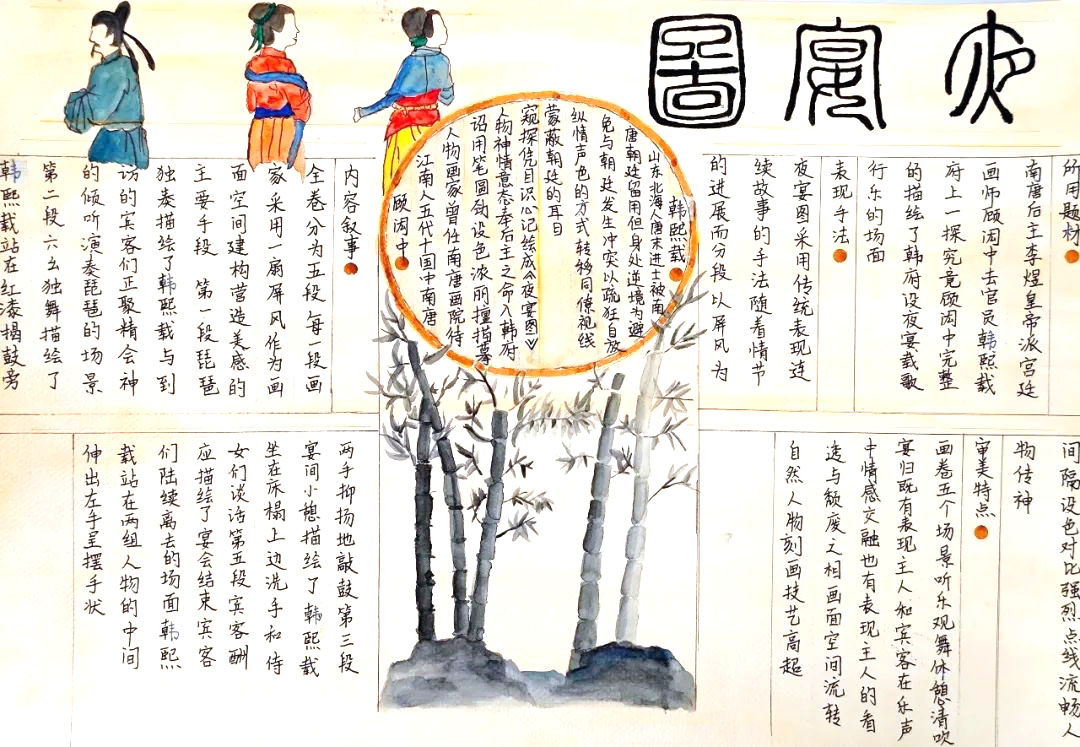 夜宴圖
所用题材
南唐后主李煜皇帝派宫廷
画师顾闳中去官员韩熙载
府上一探究竟顾闳中完整
的描绘了韩府设夜宴载歌
行乐的场面
表现手法
夜宴图采用传统表现连
续故事的手法随着情节
的进展而分段以屏风为
间隔设色对比强烈点线流畅人
物传神
审美特点
画卷五个场景听乐观舞休憩清吹
宴归既有表现主人和宾客在乐声
中情感交融也有表现主人的看
透与颓废之相画面空间流转
自然人物刻画技艺高超
韩熙载
山东北海人唐末进士被南
唐朝廷留用但身处逆境为避
免与朝廷发生冲突以疏狂自放
纵情声色的方式转移同僚视线
蒙蔽朝廷的耳目
顾闳中
江南人五代十国中南唐
人物画家曾仕南唐画院待
诏用笔圆劲设色浓丽擅描摹
人物神情意态奉后主之命入韩府
窥探凭目识心记绘成《夜宴图》
内容叙事
全卷分为五段每一段画
家采用一扇屏风作为画
面空间建构营造美感的
主要手段 第一段琵琶
独奏描绘了韩熙载与到
访的宾客们正聚精会神
的倾听演奏琵琶的场景
第二段六幺独舞描绘了
韩熙载站在红漆揭鼓旁
两手抑扬地敲鼓第三段
宴间小憩描绘了韩熙载
坐在床榻上边洗手和侍
女们谈话第五段宾客酬
应描绘了宴会结束宾客
们陆续离去的场面韩熙
载站在两组人物的中间
伸出左手呈摆手状